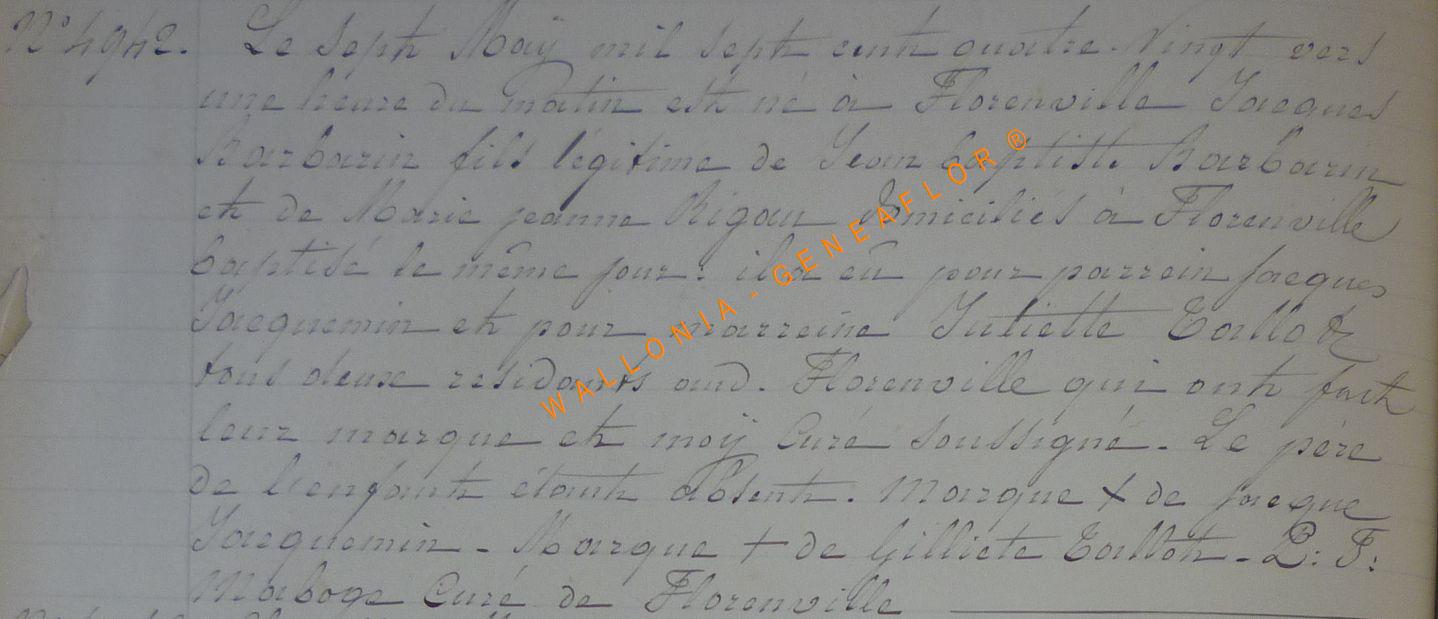 N° 4942. Le Sept Maÿ mil sept cent quatre-Vingt vers
une heure du matin est né à Florenville Jacques
Barbarin fils légitime de Jean baptiste Barbarin
et de Marie jeanne Rigaux domiciliés à Florenville
baptisé le même jour: il a eû pour parrein jacques
Jacquemin et pour marreine Juliette Tallot
tous deux residants aud. Florenville qui ont fait
leur marque et moÿ Curé soussigné. Le père
de l'enfant étant absent. Marque x de jacque
Jacquemin - Marque + de Gilliete Tallot - P: F:
Maboge Curé de Florenville
WALLONIA - GENEAFLOR ®